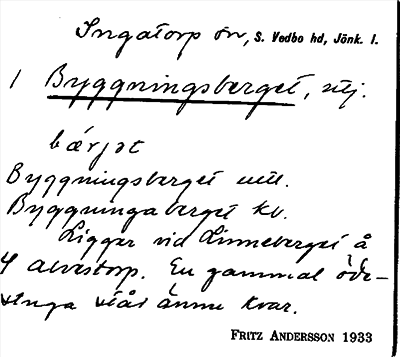 Ingatorp sn, S. Vedbo hd, Jönk. l.
1 Byggningsberget, utj.
bærjət
Byggningsberget utt.
Byggningaberget kv.
Ligger vid Linneberget å
4 Alvestorp. En gammal öde-
stuga står ännu kvar.
FRITZ ANDERSSON 1933